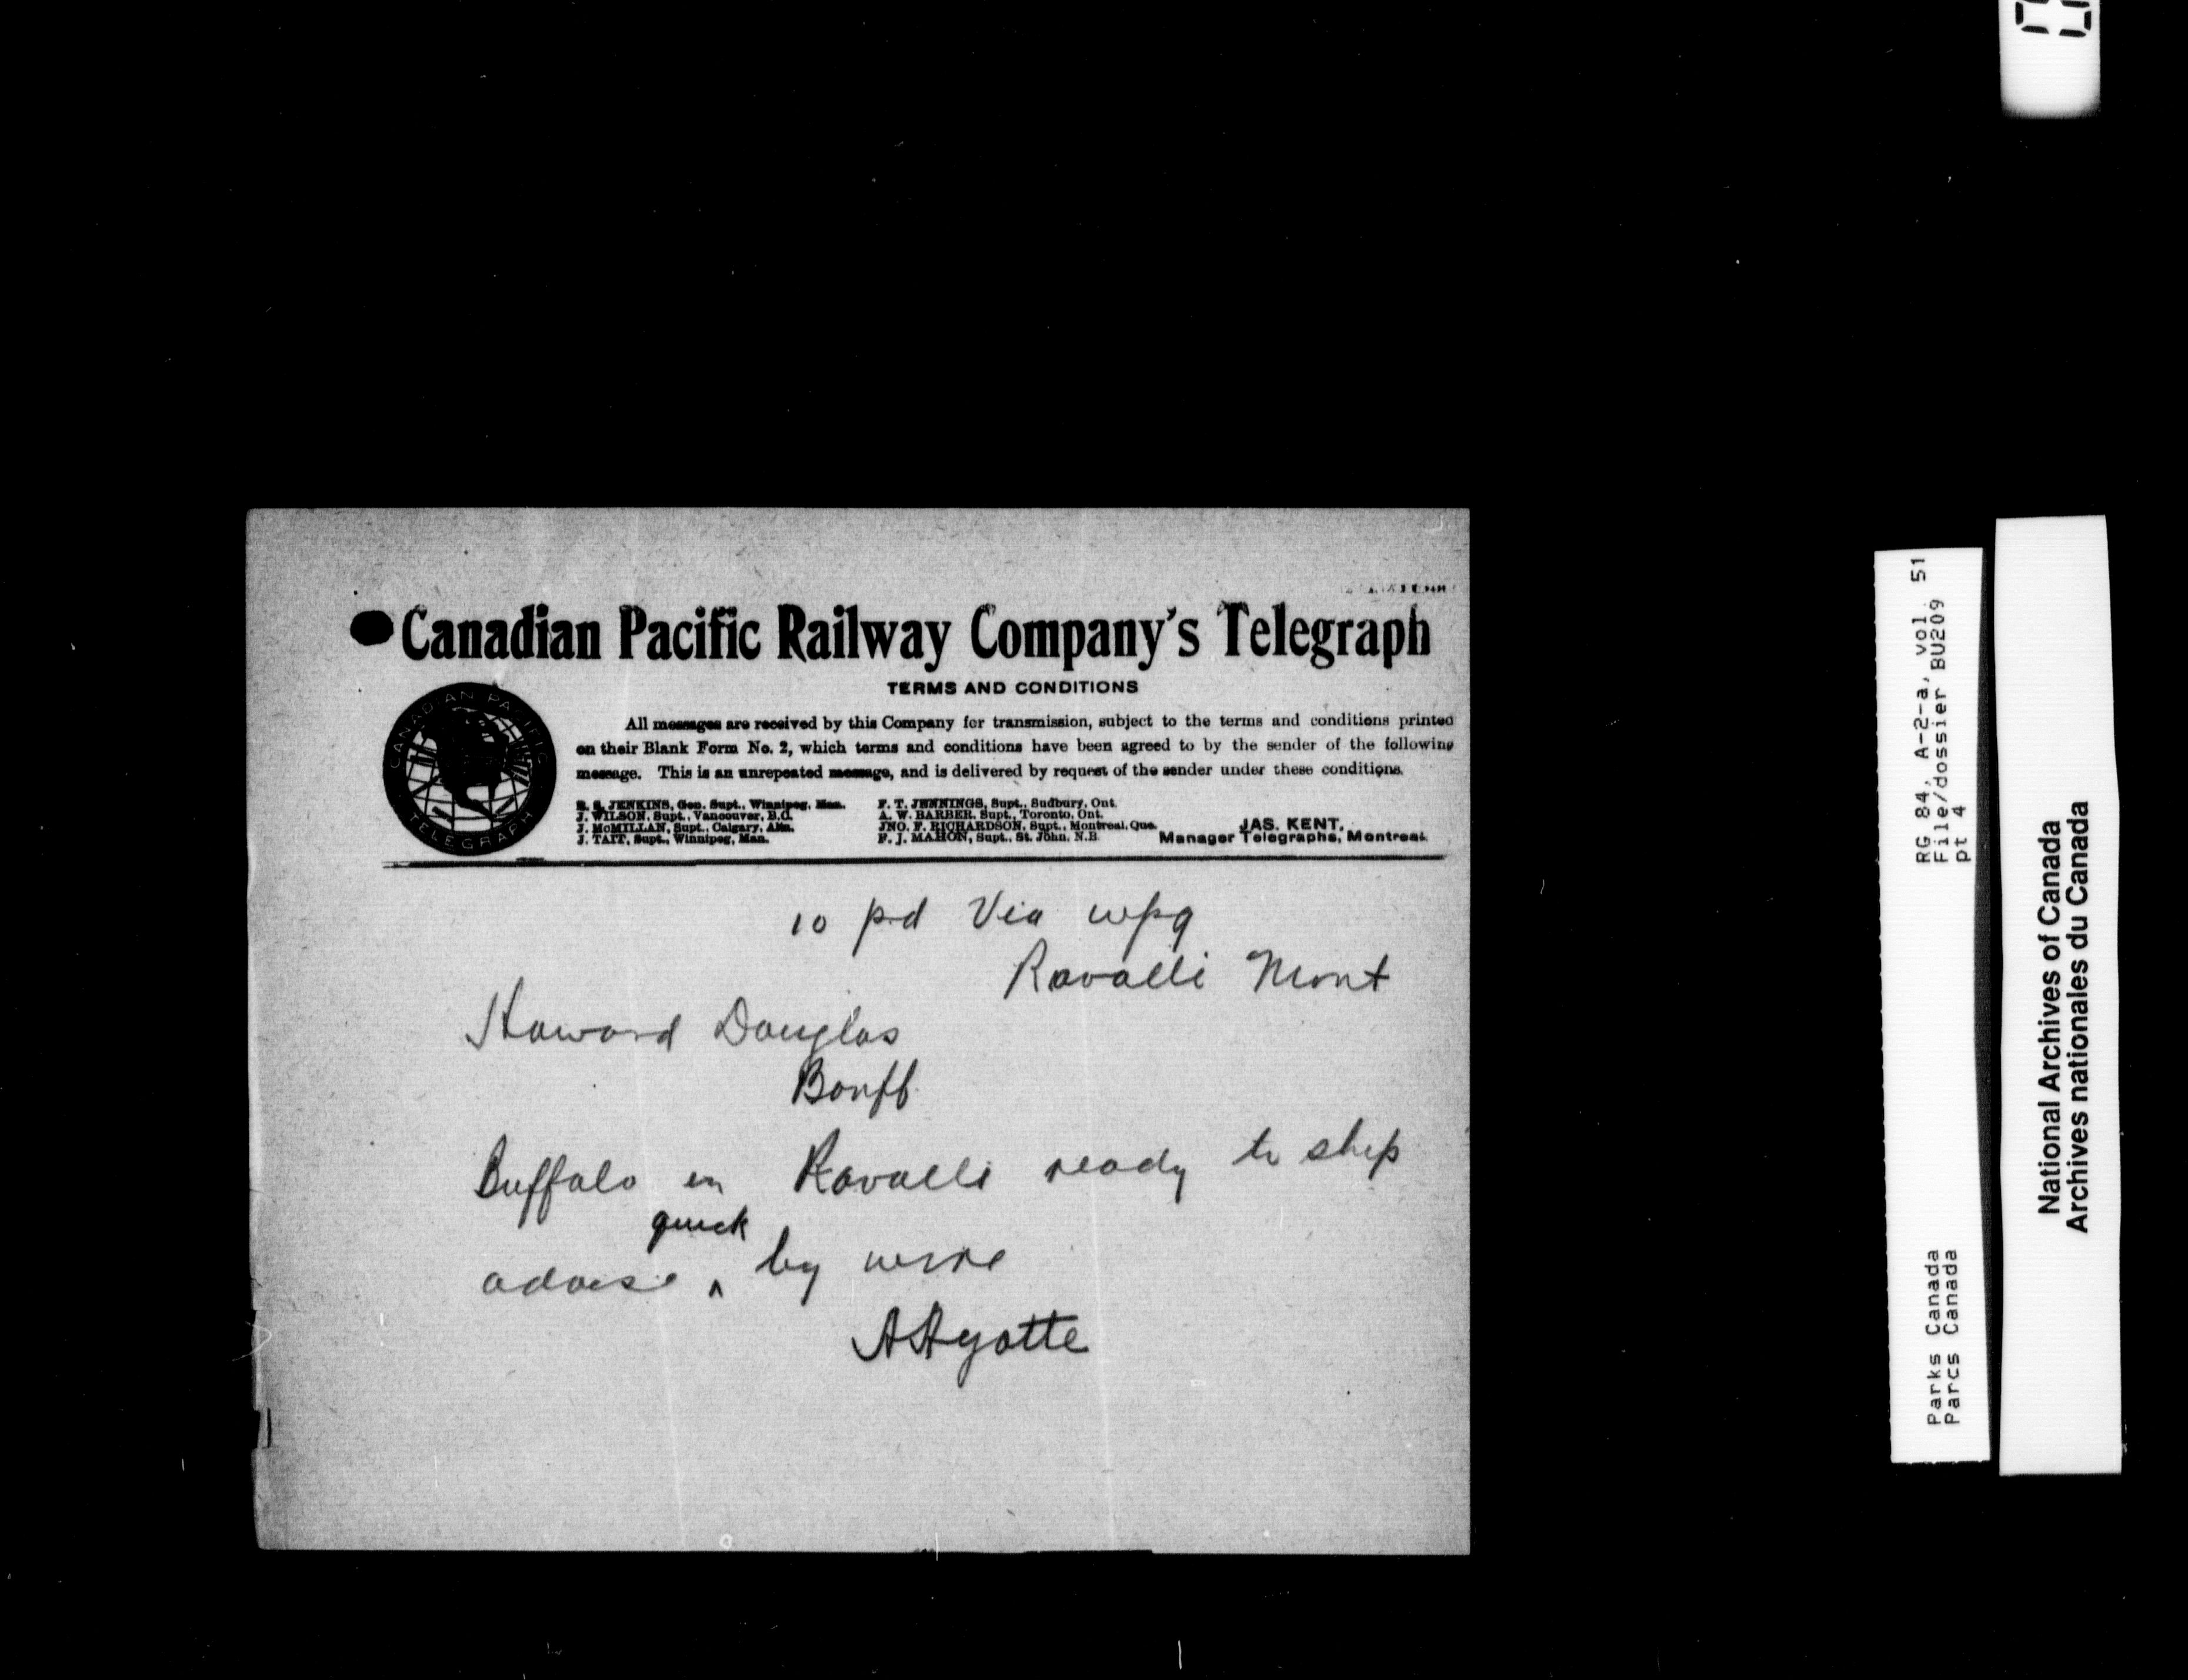 Canadian Pacific Railway Company's Telegraph
TERMS AND CONDITIONS
All messages are received by this Company for transmission, subject to the terms and conditions printed
on their Blank Form No. 2, which terms and conditions have been agreed to by the sender of the following
message. This is an unrepeated message, and is delivered by request of the sender under these conditions.
CANADIAN PACIFIC
TELEGRAPH
B. S. JENKINS, Gen. Supt., Winnipeg, Man.
J. WILSON, Supt., Vancouver, B.C.
J. McMILLAN, Supt., Calgary, Alta.
J. TAIT, Supt., Winnipeg, Man.
F. T. JENNINGS, Supt., Sudbury, Ont.
A. W. BARBER, Supt., Toronto, Ont.
JNO. F. RICHARDSON, Supt., Montreal, Que.
F. J. MAHON, Supt., St. John, N.B.
JAS. KENT,
Manager Telegraphs, Montreal.
10 pd Via wpg
Ravalli Mont
Howard Douglas
Banff
Buffalo in Ravalli ready to ship
quick
advise ^ by wire
A Ayotte
RG 84, A-2-a, vol. 51
File/dossier BU209
pt 4
Parks Canada
Parcs Canada
National Archives of Canada
Archives nationales du Canada